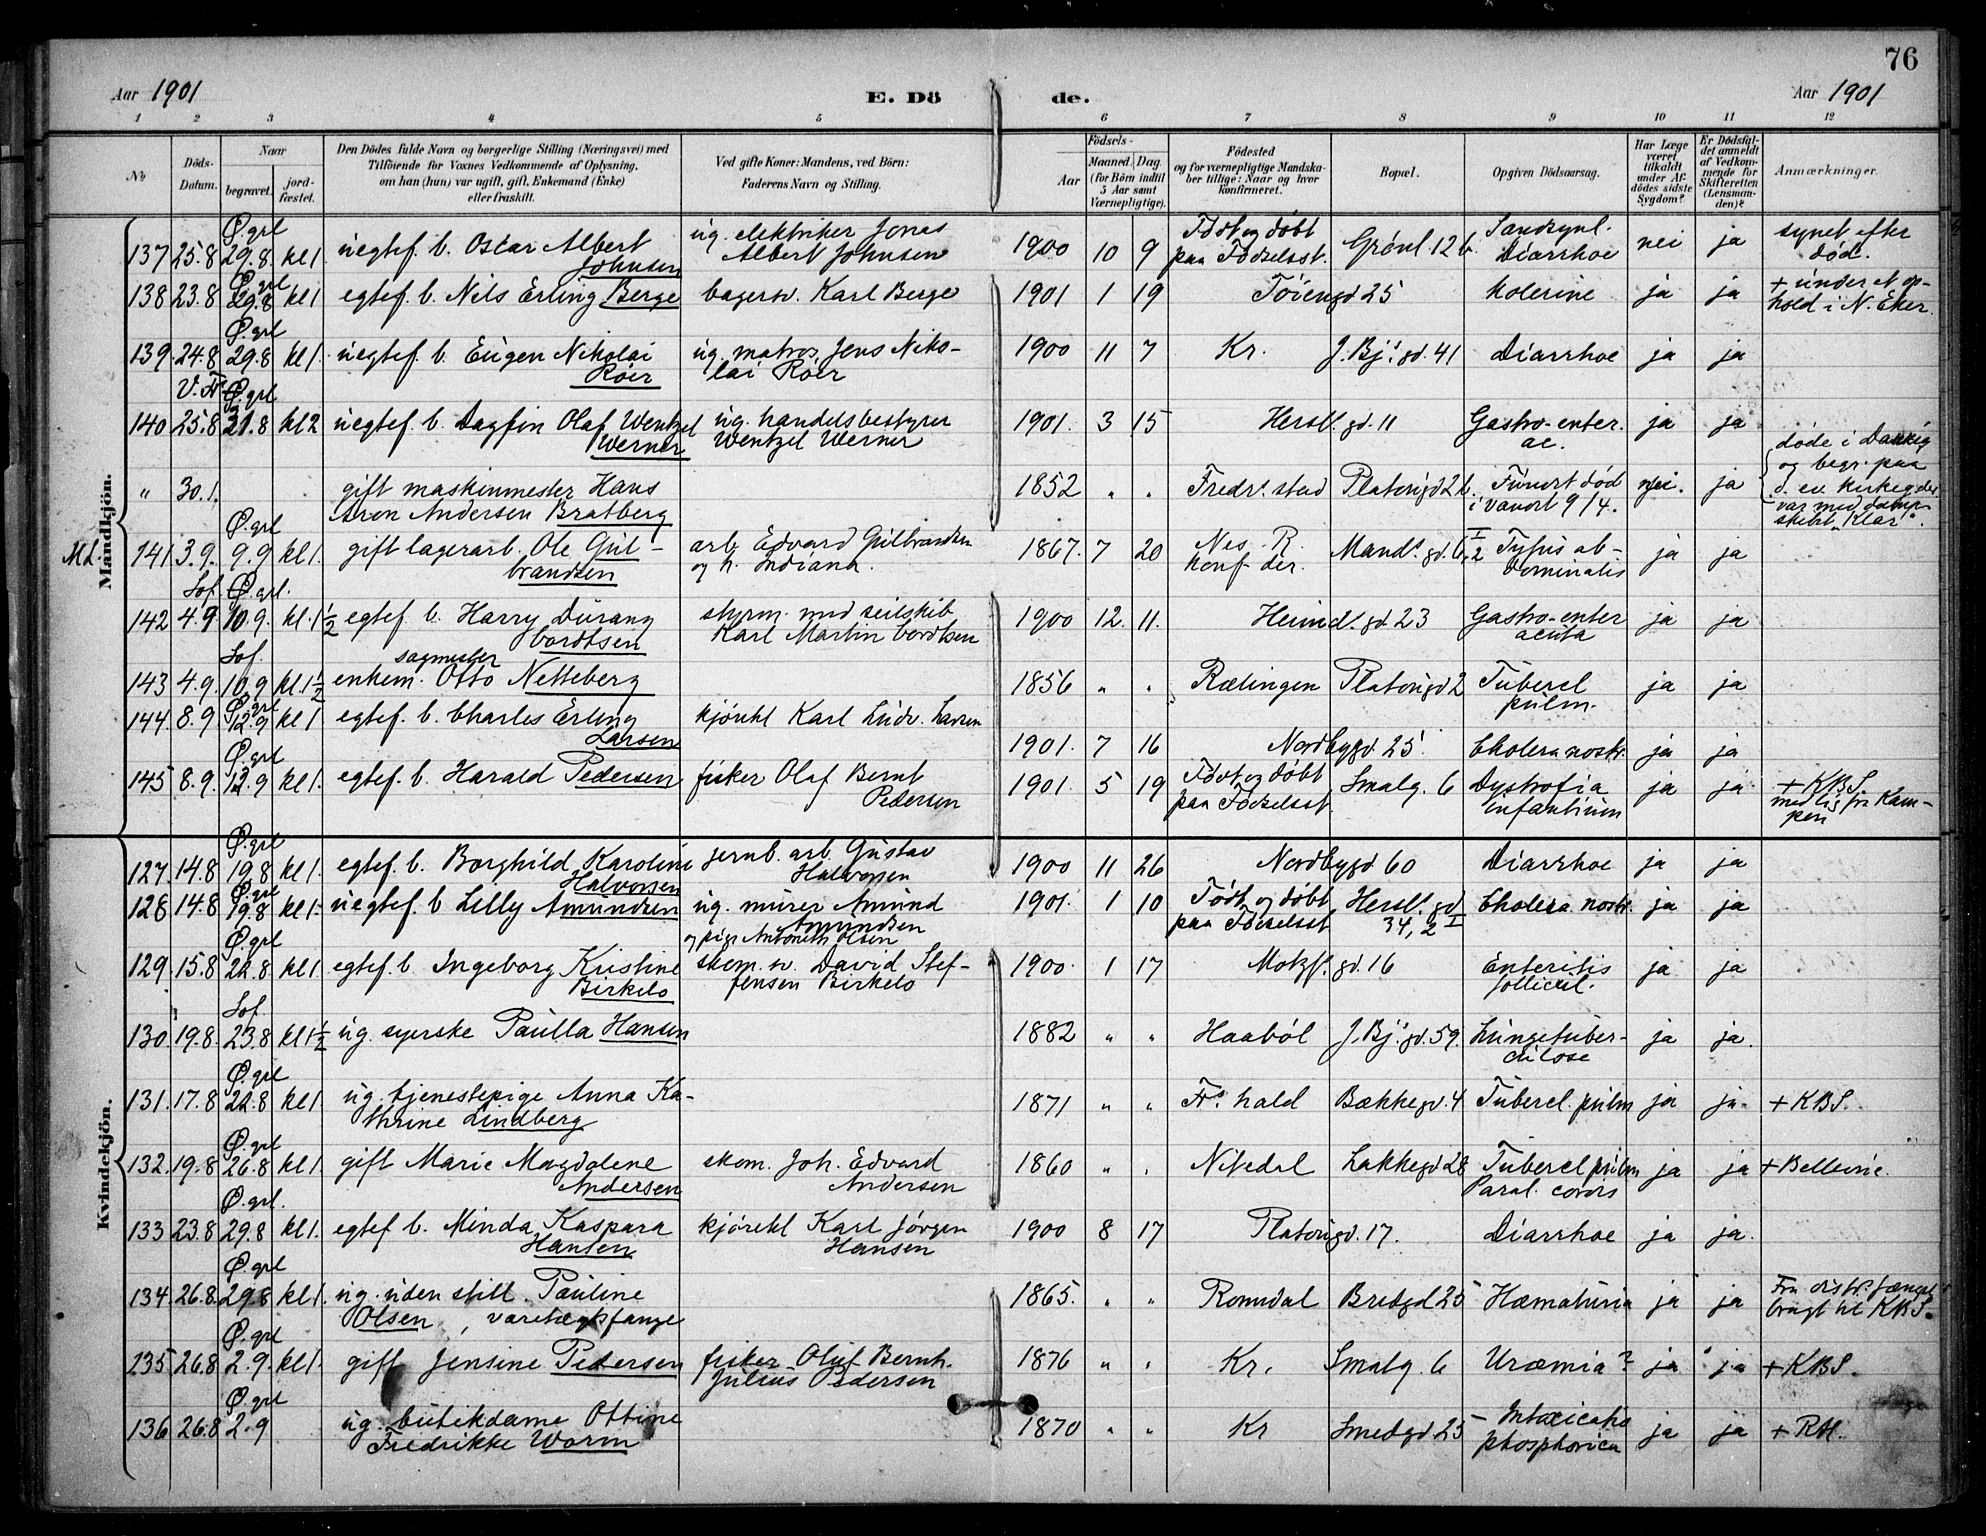 76
Aar 1901 E. Dö de. Aar 1901
1 2 3 4 5 6 7 8 9 10 11 12
№
Döds-Datum.
Naar
begravet.
jord-fæstet.
Den Dödes fulde Navn og borgerlige Stilling (Næringsvei) med
Tilföiende for Voxnes Vedkommende af Oplysning,
om han (hun) var ugift, gift, Enkemand (Enke)
eller fraskilt.
Ved gifte Koner: Mandens, ved Börn:
Faderens Navn og Stilling.
Födsels-
Aar
Maaned. Dag.
(for Börn indtil
5 Aar samt
Værnepligtige).
Födested
og for værnepligtige Mandska-
ber tillige: Naar og hvor
konfirmeret.
Bopæl.
Opgiven Dödsaarsag.
Har Læge
været
tilkaldt
under Af-
dödes sidste
Sygdom?
Er Dödsfal-
det anmeldt
af Vedkom-
mende for
Skifteretten
(Lensman-
den)?
Anmærkninger.
Mandkjön.
Ø. grl
137 25.8 29.8 kl 1 uegtef. b. Oscar Albert Johnsen ug. elektriker Jonas Albert Johnsen 1900 10 9 Født og døbt paa Fødselsst. Grønl. 12 b. Sandsynl. Diarrhoe nei ja synet efter død.
Ø. grl
138 23.8 29.8 kl 1 egtef. b. Nils Erling Berge bagersv. Karl Berge 1901 1 19 Tøiengd 25 Kolerine ja ja + under et op-hold i N. Eker.
Ø. grl
139 24.8 29.8 kl 1. uegtef. b. Eugen Nikolai Röer ug. matros Jens Niko-lai Röer 1900 11 7 Kr. J. Bj.s gd. 41 Diarrhoe ja ja
V. Fr. Ø. grl
140 25.8 31.8 kl 2 uegtef. b. Dagfin Olaf Wentzel Werner ug. handelsbestyrer Wentzel Werner 1901. 3 15 Hersl. gd. 11 Gastro-enter. ac. ja ja
" 30.1. gift maskinmester Hans Aron Andersen Bratberg 1852 " " Fredr. stad Platougd 2 b. Funort død i vanort 9/4. nei. ja døde i Danzig og begr. paa d. ev. kirkegd. var med damp-skibet "Klar".
Ø. grl
Ml. 141 3.9. 9.9 kl 1. gift lagerarb. Ole Gul-brandsen arb. Edvard Gulbrandsen og h. Indiana. 1867. 7 20 Nes. R. konf. der. Mands gd. 6, I 2 Tyfus ab-dominalis ja ja
Sof. Ø. grl.
142 4.9 10.9. kl. 1 1/2 egtef. b. Harry Durang Cordtsen styrm. med seilskib Karl Martin Cordtsen 1900 12. 11. Heimd. gd. 23 Gastro-enter acuta ja ja
Sof.
143 4.9. 10.9 kl 1 1/2 enkem. sagmester Otto Netteberg 1856 " " Rælingen Platougd 2 Tubercl pulm. ja ja
Ø. grl
144. 8.9 12.9 kl 1 egtef. b. Charles Erling Larsen kjørekl Karl Ludv. Larsen 1901. 7 16 Nordbygd. 25 Cholera nostr. ja ja
Ø. grl
145 8.9. 12.9 kl 1. egtef. b. Harald Pedersen fisker Olaf Bernt Pedersen 1901. 5 19 Født og døbt paa Fødselsst Smalg. 6 Dystrofia infantium ja ja + KBS. med lig fr Kam-pen
Kvindekjön.
Ø. grl
127. 14.8 19.8 kl 1. egtef. b. Borghild Karoline Halvorsen jernb. arb. Gustav Halvorsen 1900 11 26 Nordbygd 60 Diarrhoe ja ja
Ø. grl
128 14.8 19.8 kl 1. uegtef. b Lilly Amundsen ug. murer Amund Amundsen og pige Antonette Olsen 1901. 1 10 Født og døbt paa Fødselsst Hersl. gd 34, 2 I Cholera nostr. ja ja
Ø. grl
129 15.8 22.8 kl 1 egtef. b. Ingeborg Kristine Birkelo skom. sv. David Stef-fensen Birkelo 1900 1 17 Motzf. gd. 16 Enteritis follicul. ja ja
Sof.
130 19.8. 23.8 kl 1 1/2 ug. syerske Paulla Hansen 1882 " " Haaböl J. Bj.s gd. 59. Lungetuber-culose ja ja.
Ø. grl
131. 17.8 22.8 kl 1 ug. tjenestepige Anna Ka-thrine Lindberg 1871 " " Fr.s hald Bækkegd. 4 Tubercl. pulm ja ja + KBS.
Ø. grl
132. 19.8 26.8 kl 1 gift Marie Magdalene Andersen skom. Joh. Edvard Andersen 1860 " " Nitedal Lakkegd 28 Tubercl pulm Paral. cordis ja ja + Bellevue.
Ø. grl.
133 23.8 29.8 kl 1. egtef b. Minda Kaspara Hansen kjørekl Karl Jörgen Hansen 1900 8 17 Platougd. 17. Diarrhoe ja ja.
Ø. grl
134. 26.8. 29.8 kl 1. ug. uden still. Pauline Olsen, varetægtsfange 1865. " " Romsdal Bredgd 25 Hæmaturia ja ja Fra distr. fængsl bragt til KBS.
Ø. grl
235 26.8 2.9. kl 1. gift Jensine Pedersen fisker Oluf Bernh. Julius Pedersen 1876 " " Kr. Smalg. 6 Uræmia? ja ja + KBS.
Ø. grl
136 26.8 2.9 ug. butikdame Ottine Fredrikke Worm 1870 " " Kr Smedgd 25 Intoxicatio phosphorica ja ja + RH.